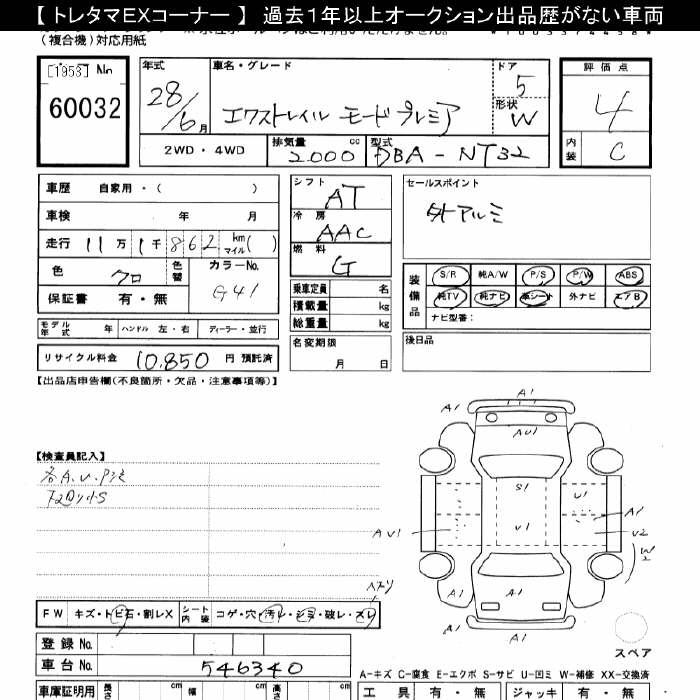 【 トレタマEXコーナー 】 過去1年以上オークション出品歴がない車両
(複合機)対応用紙
[1958] No
60032
年式
28/6月
車名・グレード
エクストレイル モードプレミア
ドア
5
形状
W
評価点
4
内装
C
2WD・4WD
排気量
2.000 cc
型式
DBA-NT32
車歴 自家用・( )
車検 年 月
走行 11万1千862 km マイル( )
色 クロ 色替
カラーNo.
G41
保証書 有・無
シフト
AT
冷房
AAC
燃料
G
セールスポイント
外アルミ
乗車定員 名
積載量 kg
総重量 kg
装備品
S/R 純A/W P/S P/W ABS
純TV 純ナビ 革シート 外ナビ エアB
ナビ型番:
モデル年式 年 ハンドル 左・右 ディーラー・並行
リサイクル料金 10,850 円 預託済
名変期限
月 日
後日品
【出品店申告欄(不良箇所・欠品・注意事項等)】
【検査員記入】
各A、U、P
A1
A1 A1
AU1
S1 U1
A1
AU1 V1 U2
W2
A1 A1
A1
スペア
FW キズ・トビ石・割レX シート内装 コゲ・穴・汚レ・シミ・破レ・スレ
登録No.
車台No. 546340
A-キズ C-腐食 E-エクボ S-サビ U-凹ミ W-補修 XX-交換済
車庫証明用 長さ cm 幅 cm 高さ cm
工具 有・無 ジャッキ 有・無